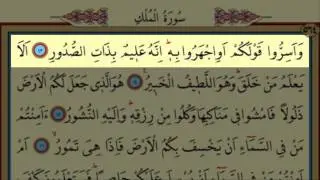 سُورَةُ الْمُلْكِ
وَاَسِرُّوا قَوْلَكُمْ اَوِ اجْهَرُوا بِهِ اِنَّهُ عَلِيمٌ بِذَاتِ الصُّدُورِ ١٣ اَلَا
يَعْلَمُ مَنْ خَلَقَ وَهُوَ اللَّطِيفُ الْخَبِيرُ ١٤ هُوَ الَّذِي جَعَلَ لَكُمُ الْاَرْضَ
ذَلُولًا فَامْشُوا فِي مَنَاكِبِهَا وَكُلُوا مِنْ رِزْقِهِ وَاِلَيْهِ النُّشُورُ ١٥ ءَاَمِنْتُمْ
مَنْ فِي السَّمَاءِ اَنْ يَخْسِفَ بِكُمُ الْاَرْضَ فَاِذَا هِيَ تَمُورُ ١٦